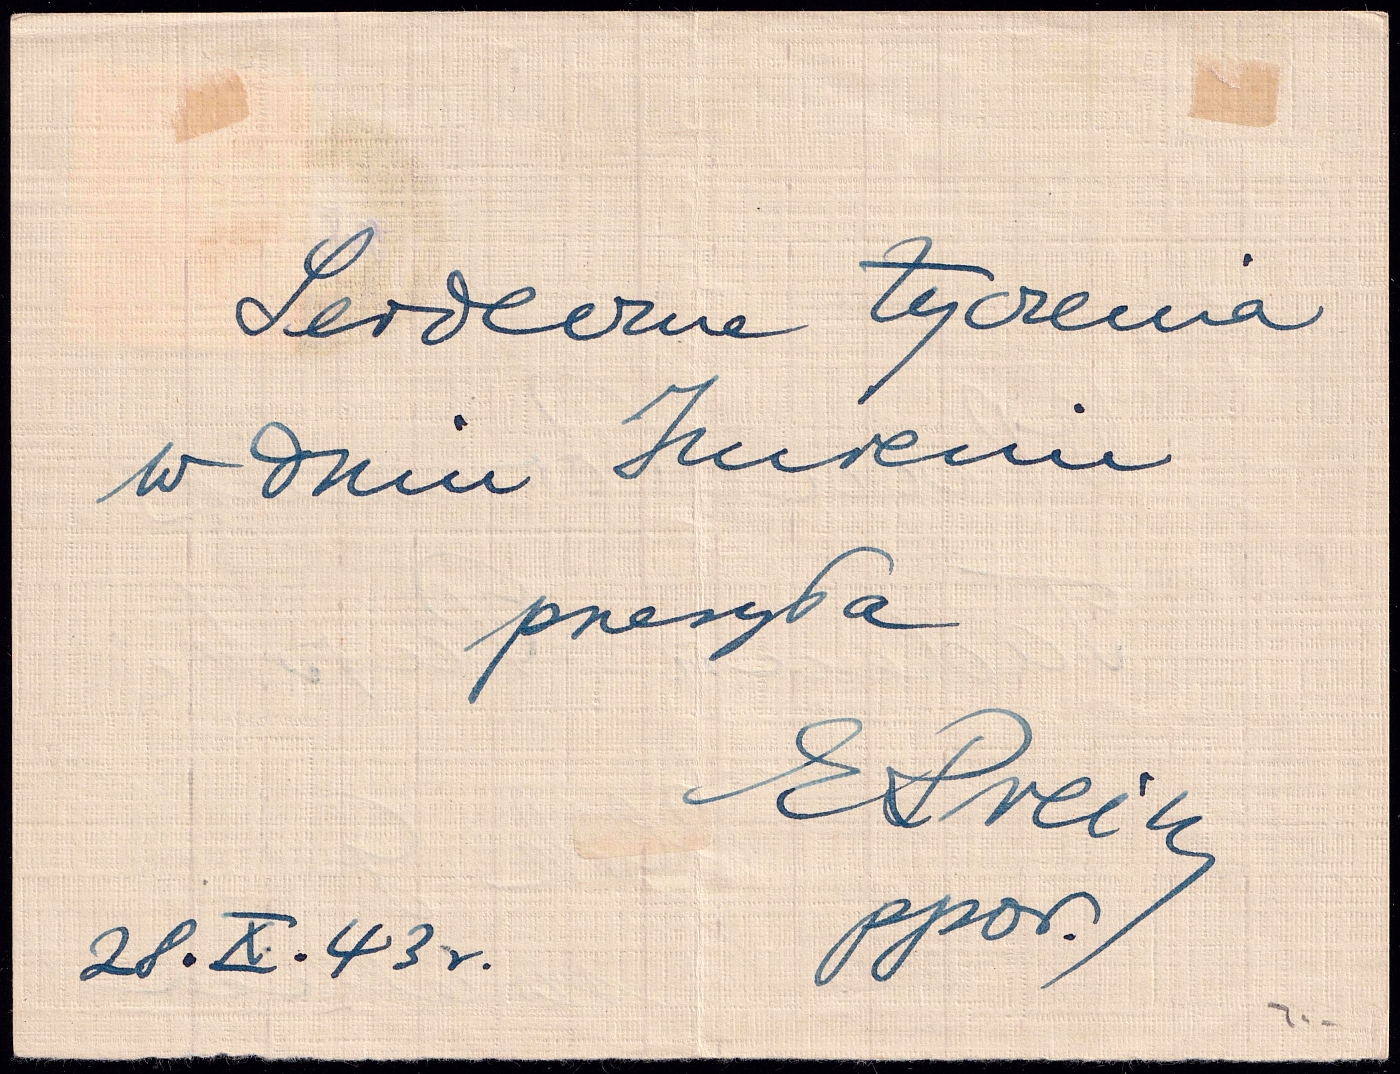 Serdeczne życzenia
w dniu Imienin
przesyła
E Prein
ppor.
28.X.43r.
7.-